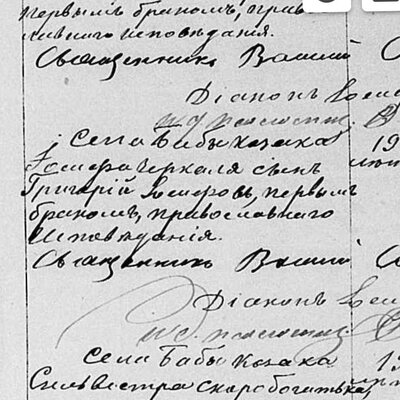 первымъ бракомъ, право
славнаго исповѣданія.
Священникъ Василій
Діаконъ Іосиф
и. д. псаломщ.
Села Бабы козака 19
Іосифа Черкаля сынъ
Григорій Іосифовъ, первымъ
бракомъ, православнаго
исповѣданія.
Священникъ Василій
Діаконъ
и. д. псаломщ.
Села Бабы козака
Сильвестра Скоробогатька